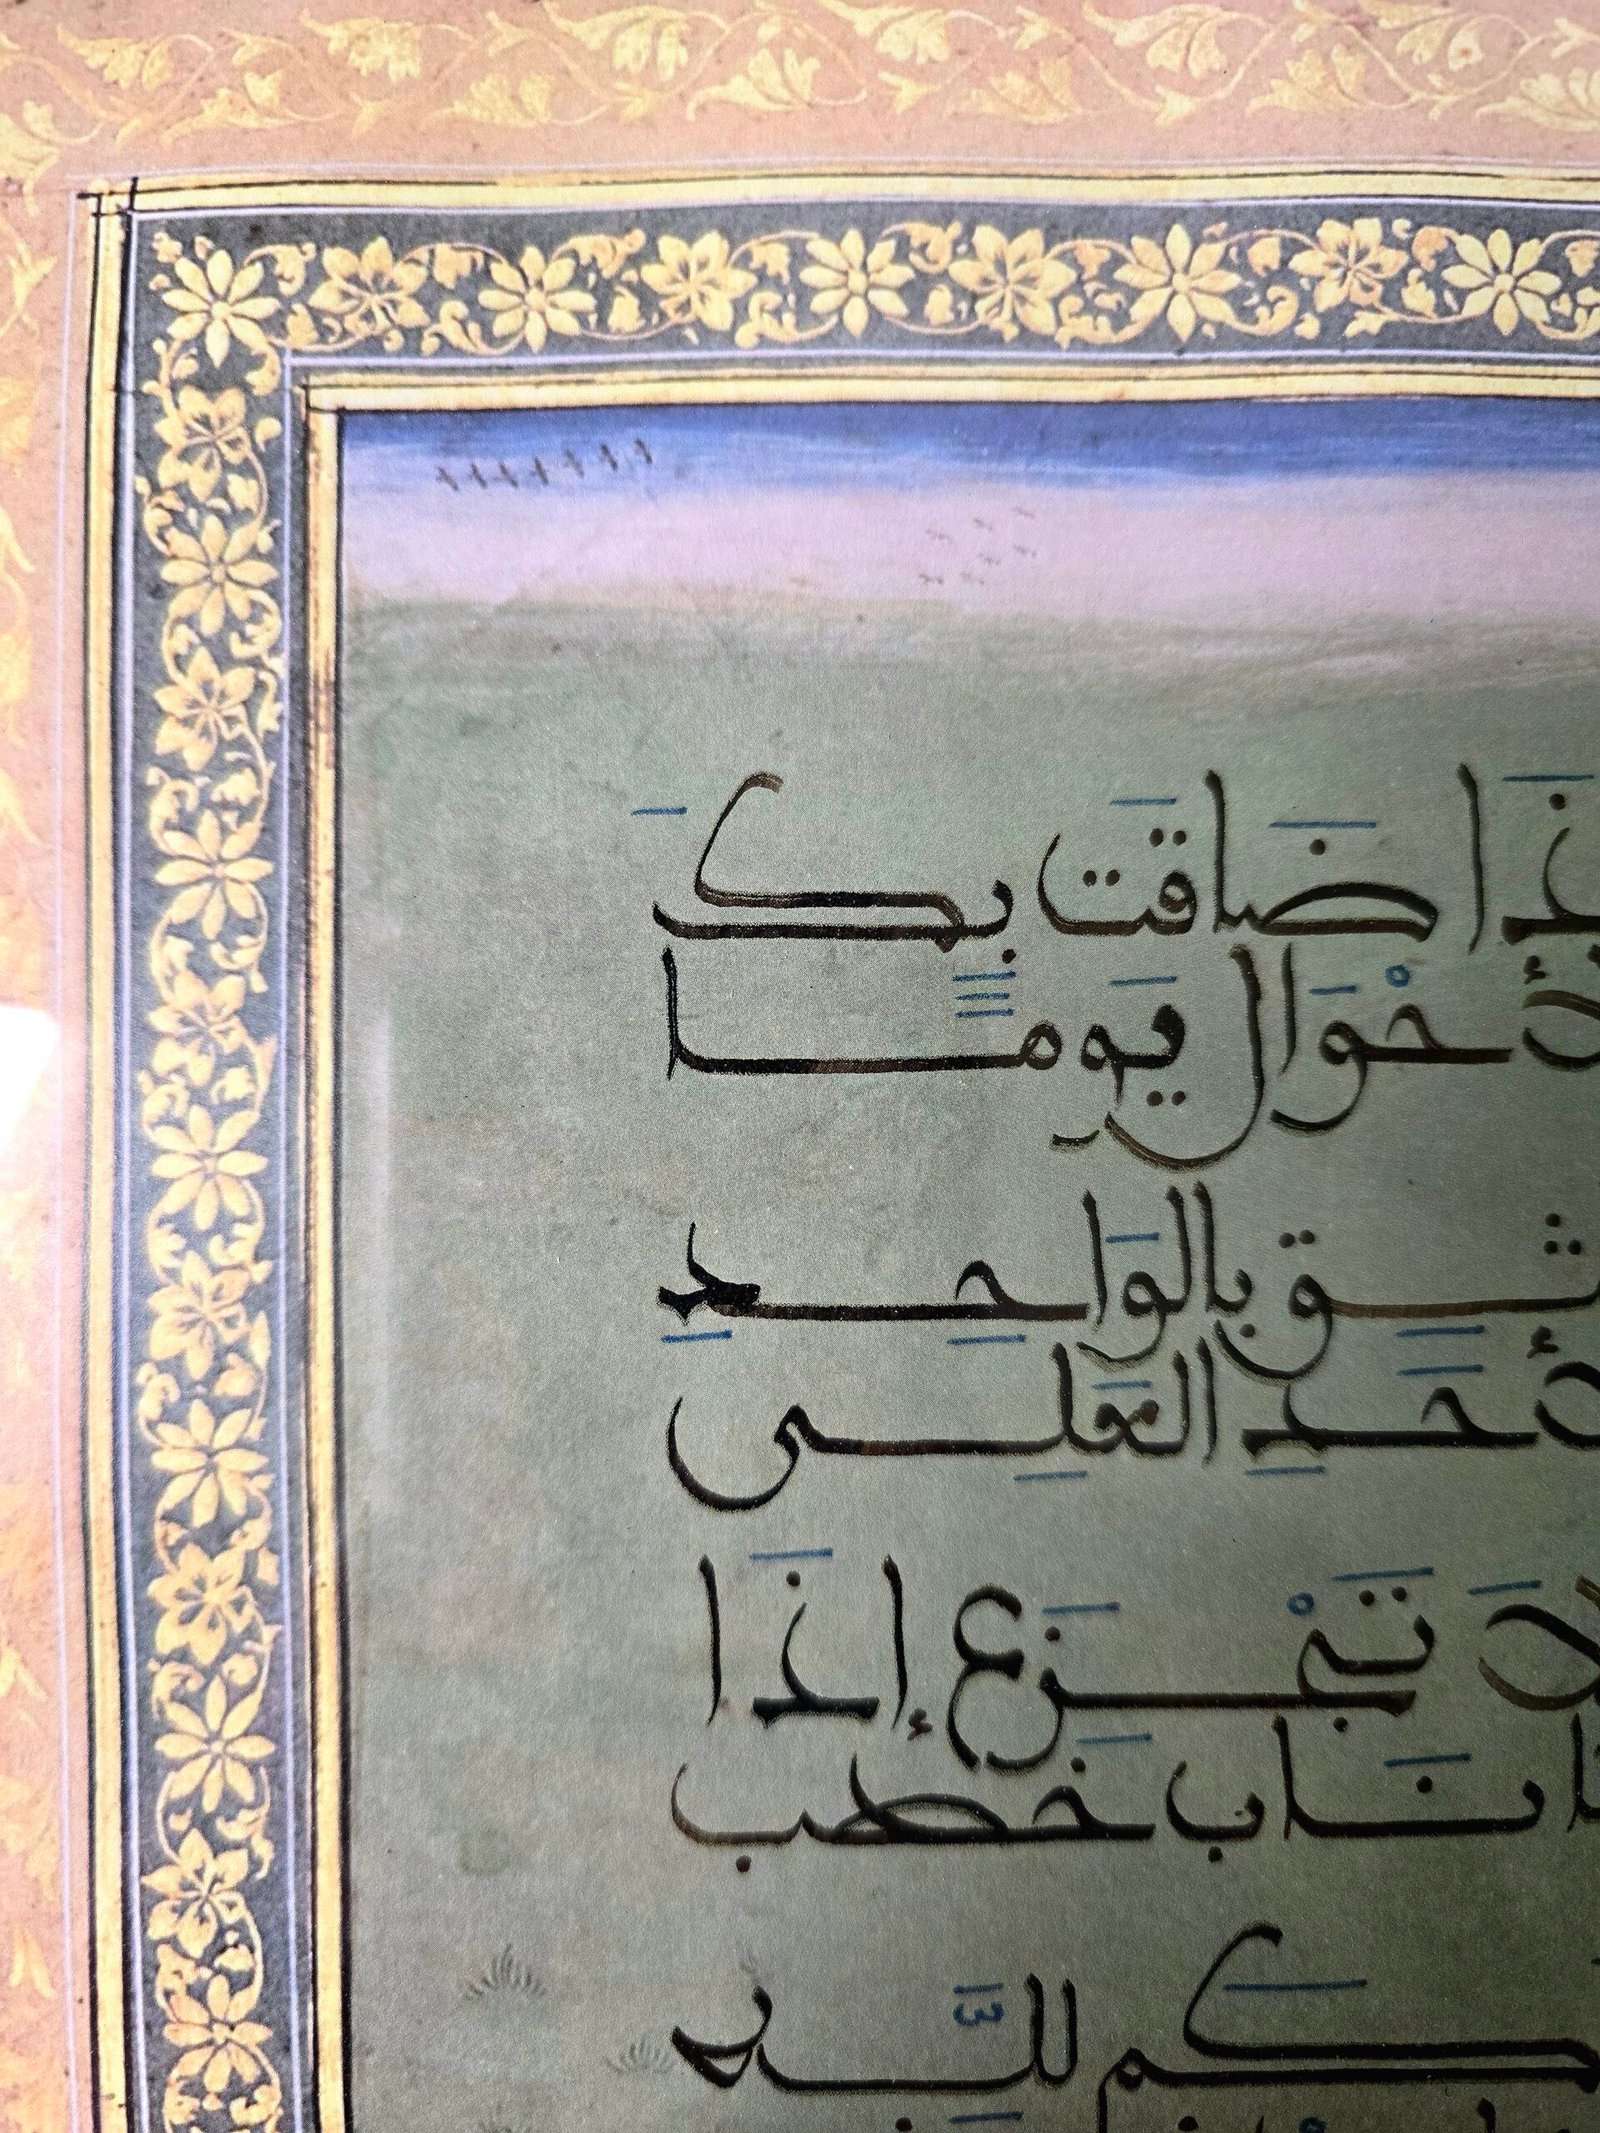 ذَا ضَاقَت بكَ
لأحْوَال يَومًا
ثق بالوَاحِدِ
لأحَدِ العَلِي
لَا تَجْزَع إذَا
ا نَاب خَطب
كَم للَّهِ